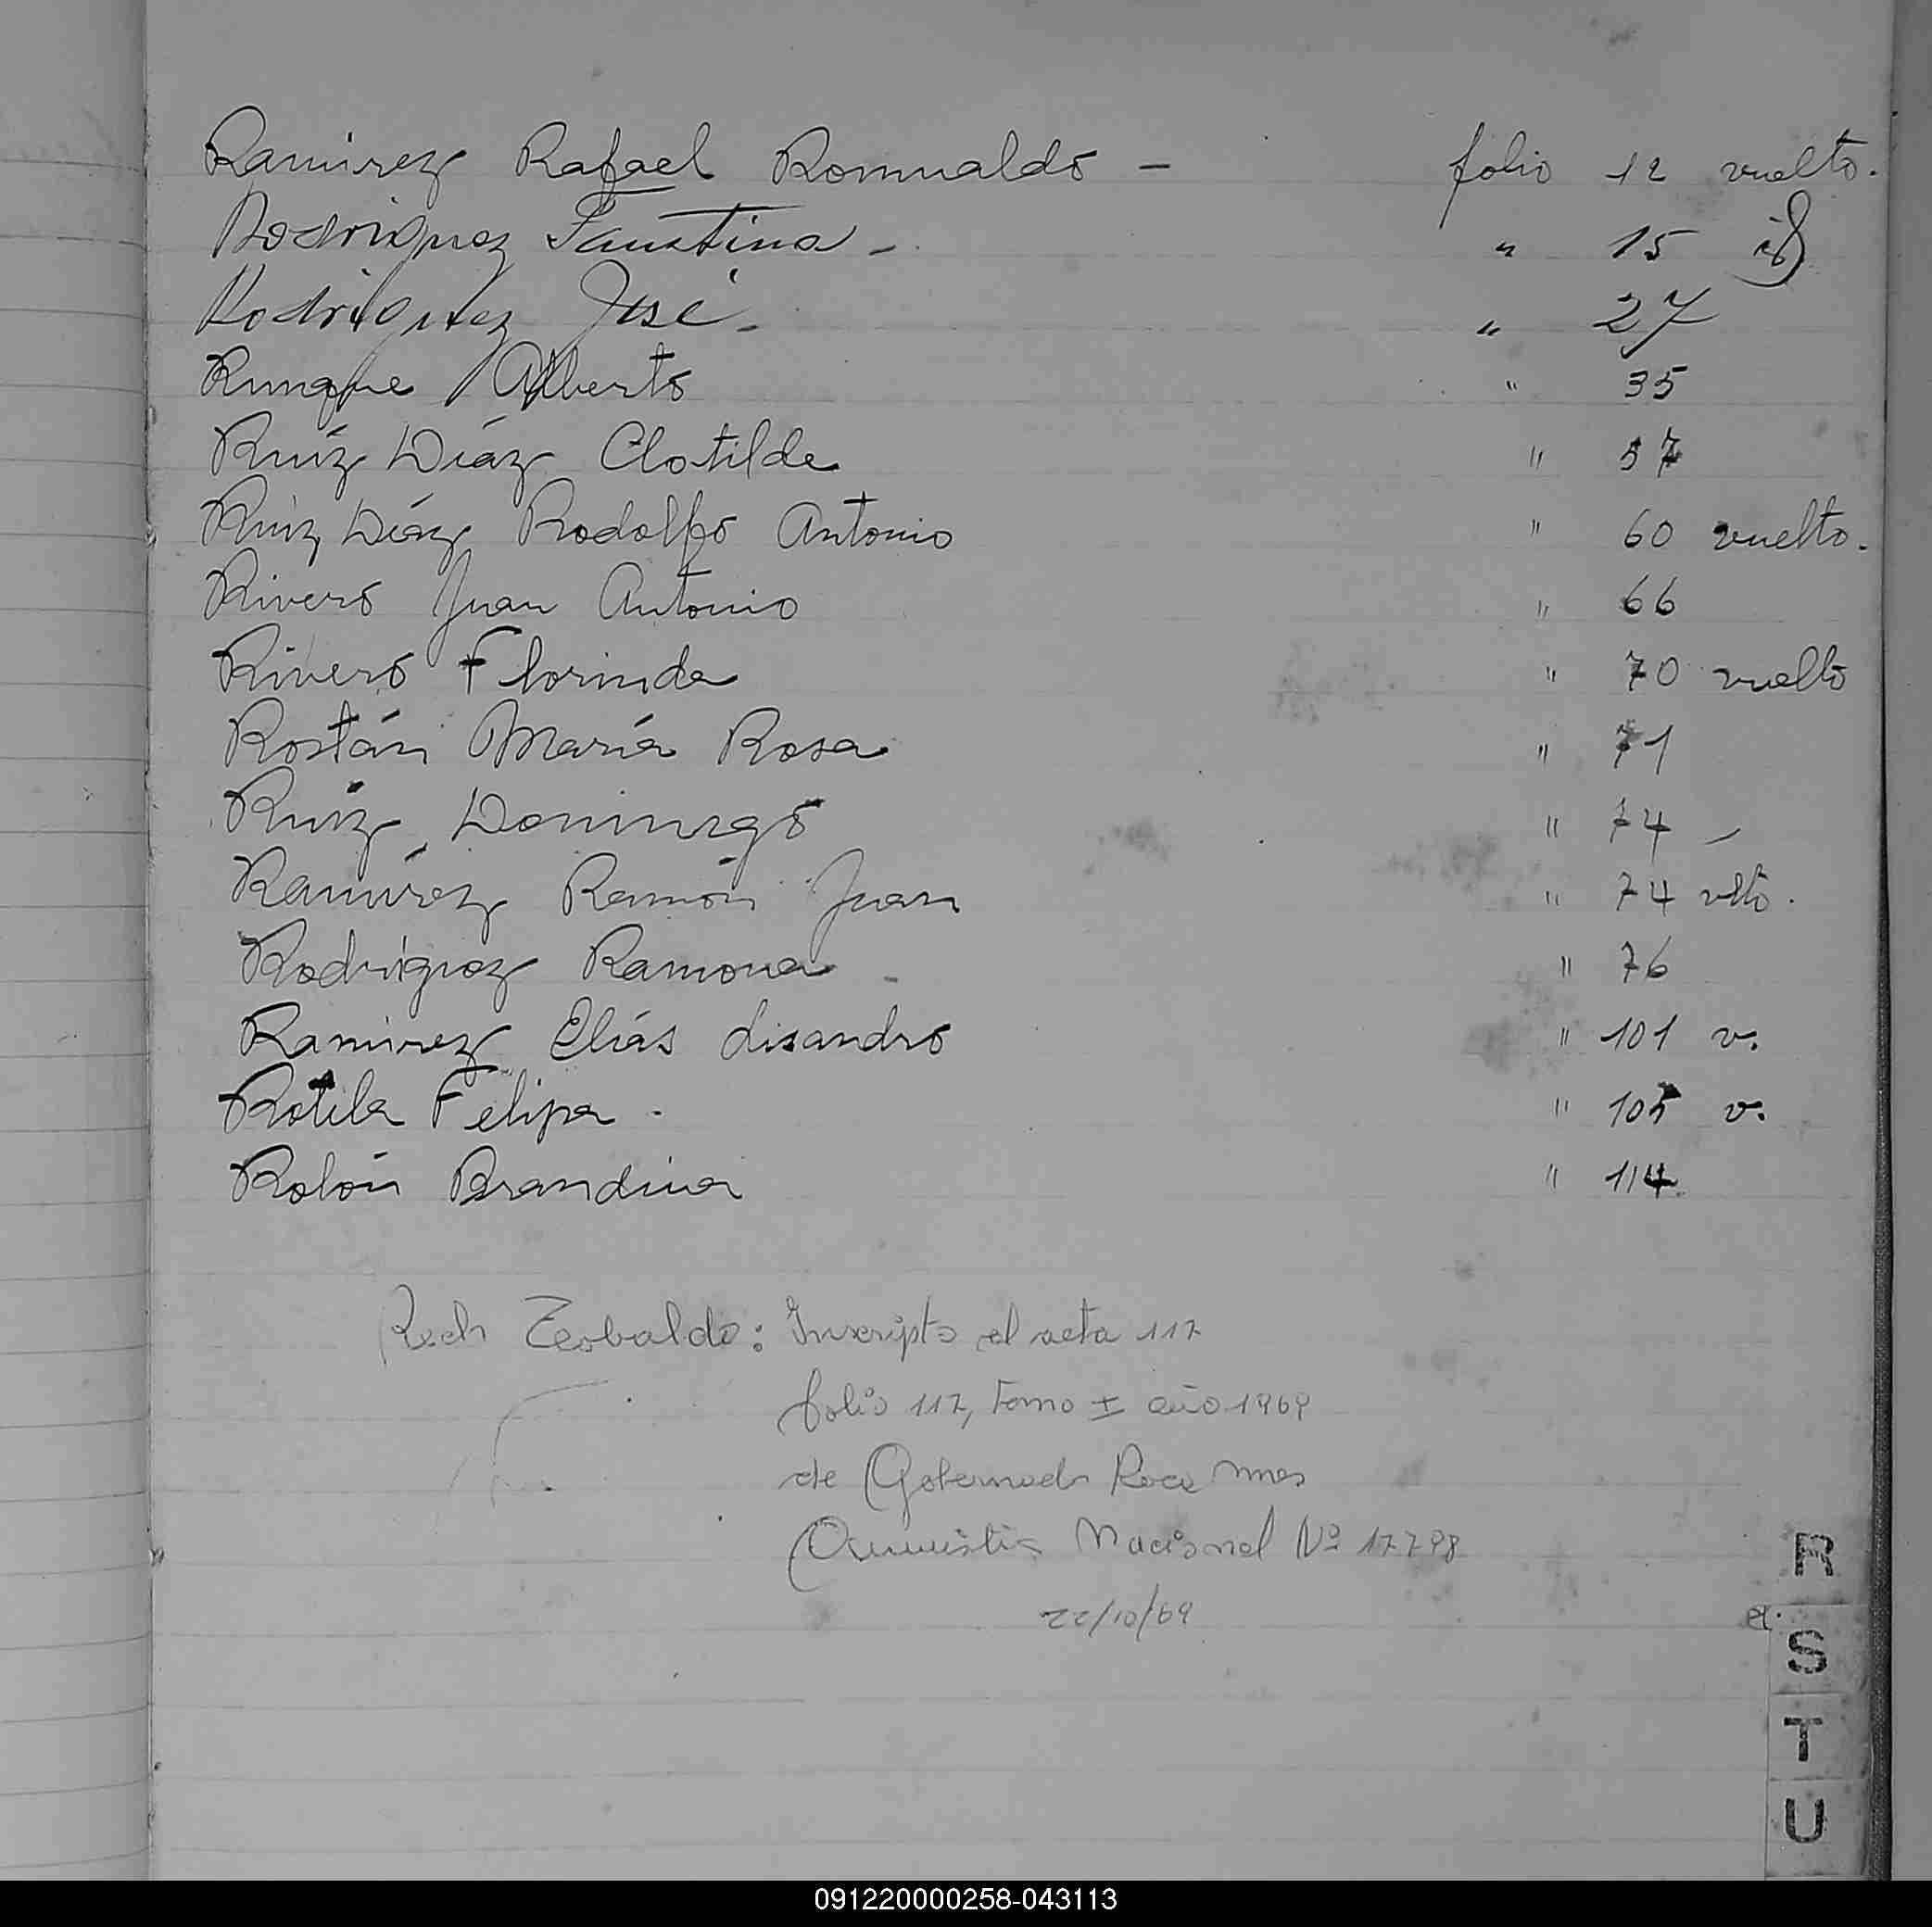 Ramirez Rafael Romualdo - folio 12 vuelto.
Rodriguez Faustina - " 15
Rodriguez José - " 27
Runque Alberto " 35
Ruíz Díaz Clotilde " 57
Ruiz Díaz Rodolfo Antonio " 60 vuelto.
Rivero Juan Antonio " 66
Rivero Florinda " 70 vuelto
Rostán María Rosa " 71
Ruíz Domingo " 74 -
Ramírez Ramón Juan " 74 vlto.
Rodríguez Ramona " 76
Ramirez Elías Lisandro " 101 v.
Rotela Felipa . " 105 v.
Rolón Brandina " 114
Rech Teobaldo: Inscripto el acta 117
folio 117, Tomo I año 1969
de Gobernador Roca Mnes
Amnistia Nacional Nº 17798
22/10/69
R
S
T
U
091220000258-043113